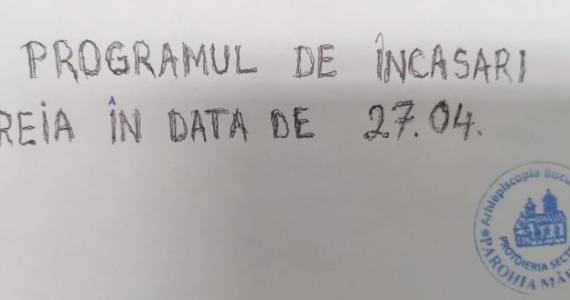 PROGRAMUL DE ÎNCASARI
REIA ÎN DATA DE 27.04.
Arhiepiscopia Bucu
PROTOIERIA SECT
PAROHIA MĂR